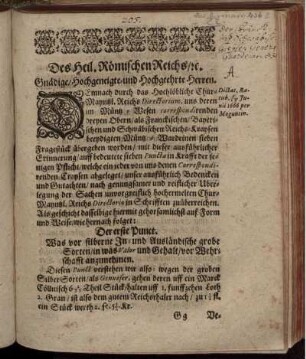 205.
Des Heil. Römischen Reichs/ꝛc.
Gnädige/Hochgeneigte und Hochgeehrte Herren.
Demnach durch das Hochlöbliche Chur-
Mayntz. Reichs Directorium, uns deren
im Müntz-Wesen correspondirenden
dreyen Obern/als Fränckischen/Bayri-
schen und Schwäbischen Reichs-Craysen
beeydigten Müntz-Wardeinen sieben
Fragestück übergeben worden/mit dieser außführlicher
Erinnerung/auff bedeutete sieben Puncta in Krafft der je-
nigen Pflicht/welche ein jeder von uns denen Correspondi-
renden Craysen abgelegt/unser außführlich Bedencken
und Gutachten/nach genungsamer und reifflicher Uber-
legung der Sachen unvorgreifflich hochermelten Chur
Mayntz. Reichs Directorio in Schrifften zu überreichen.
Als geschicht dasselbige hiermit gehorsamlichst auff Form
und Weise wie hernach folget:
Der erste Punct.
Was vor silberne In- und Ausländische grobe
Sorten/in was Valor und Gehalt/vor Wehr-
schafft anzunehmen.
Diesen Punct verstehen wir also: wegen der groben
Silber Sorten/als
gehen deren auff ein Marck
Cöllnisch
Theil Stück/halten
Loth
2. Gran/ist also dem guten Reichsthaler nach/
ein Stück werth
Gg
Ve-
A
Dictat. Ra-
tisb.
1668 per
Moguntin.